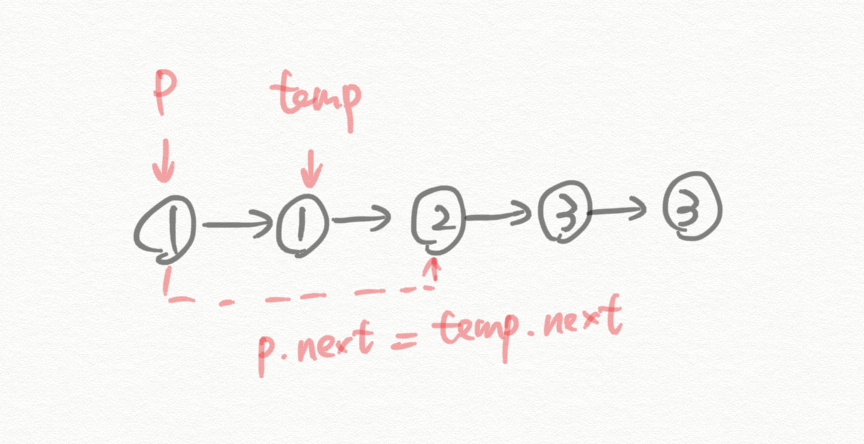 p temp
1 1 2 3 3
p.next = temp.next